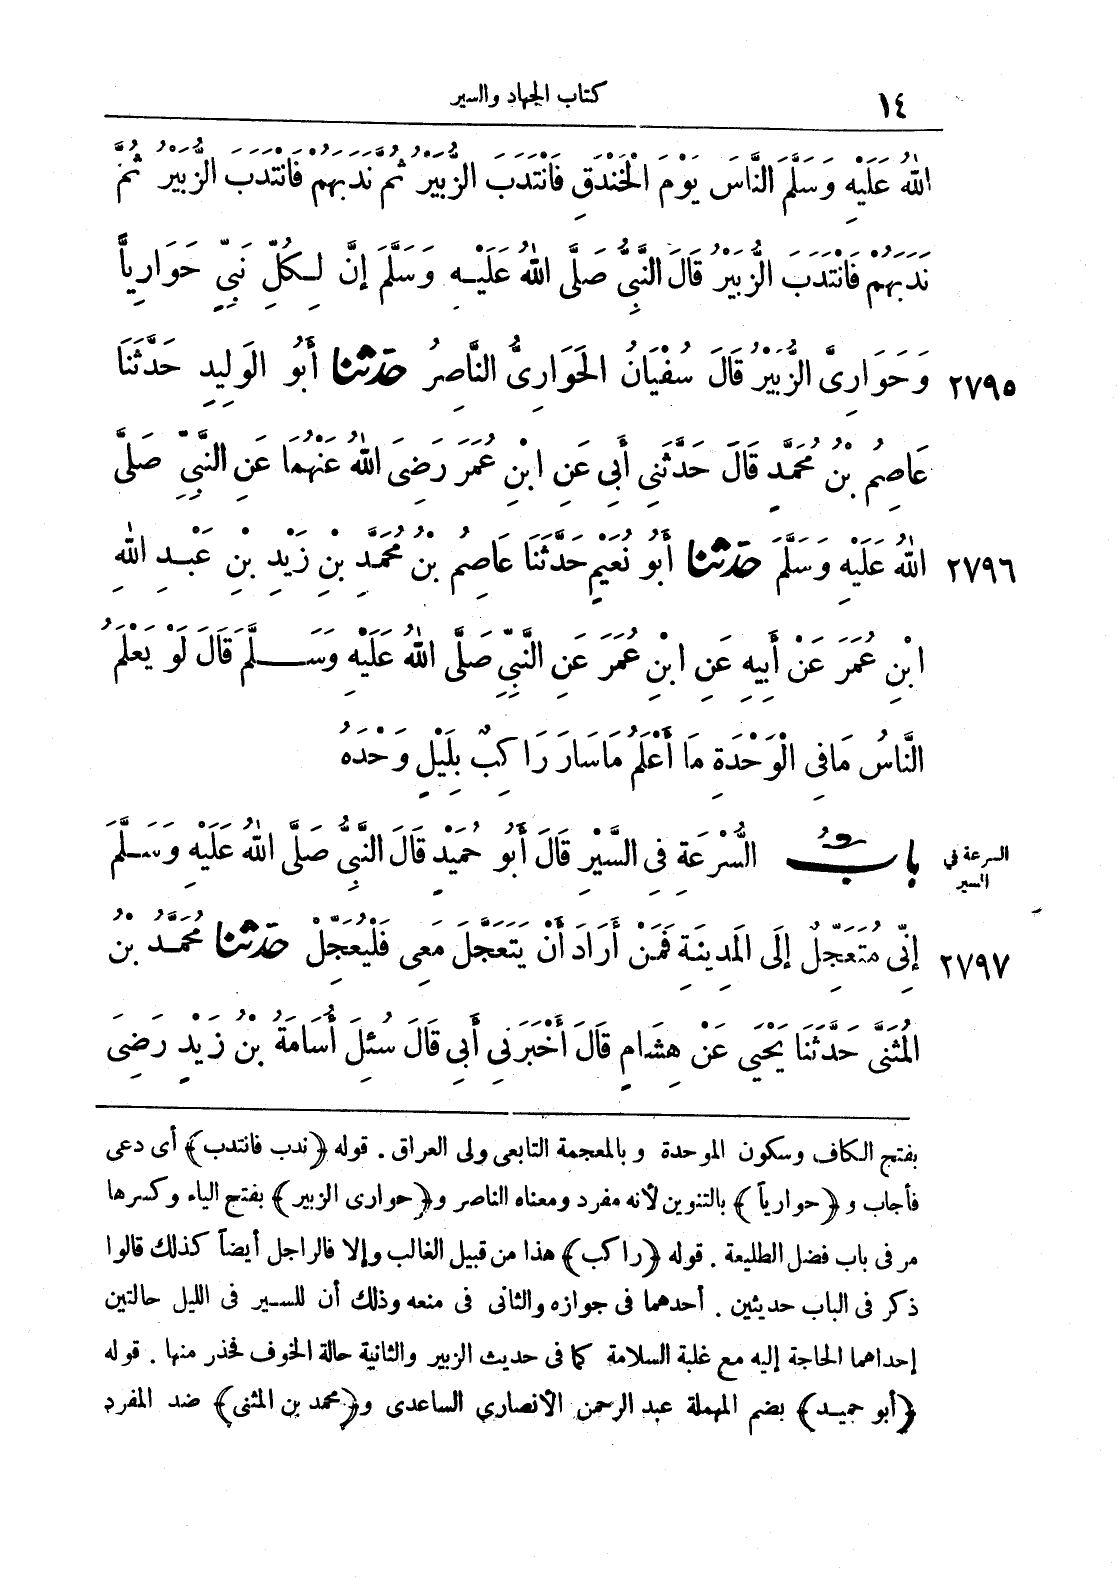 ١٤
كتاب الجهاد والسير
اللهُ عَلَيْهِ وَسَلَّمَ النَّاسَ يَوْمَ الْخَنْدَقِ فَانْتَدَبَ الزُّبَيْرُ ثُمَّ نَدَبَهُمْ فَانْتَدَبَ الزُّبَيْرُ ثُمَّ
نَدَبَهُمْ فَانْتَدَبَ الزُّبَيْرُ قَالَ النَّبِيُّ صَلَّى اللهُ عَلَيْهِ وَسَلَّمَ إِنَّ لِكُلِّ نَبِيٍّ حَوَارِياًّ
٢٧٩٥ وَحَوَارِىَّ الزُّبَيْرُ قَالَ سُفْيَانُ الحَوَارِىُّ النَّاصِرُ حَدَّثَنَا أَبُو الوَلِيدِ حَدَّثَنَا
عَاصِمُ بْنُ مُحَمَّدٍ قَالَ حَدَّثَنِى أَبِى عَنِ ابْنِ عُمَرَ رَضِىَ اللهُ عَنْهُمَا عَنِ النَّبِيِّ صَلَّى
٢٧٩٦ اللهُ عَلَيْهِ وَسَلَّمَ حَدَّثَنَا أَبُو نُعَيْمٍ حَدَّثَنَا عَاصِمُ بْنُ مُحَمَّدِ بْنِ زَيْدِ بْنِ عَبْدِ اللهِ
ابْنِ عُمَرَ عَنْ أَبِيهِ عَنِ ابْنِ عُمَرَ عَنِ النَّبِيِّ صَلَّى اللهُ عَلَيْهِ وَسَلَّمَ قَالَ لَوْ يَعْلَمُ
النَّاسُ مَافِى الْوَحْدَةِ مَا أَعْلَمُ مَاسَارَ رَاكِبٌ بِلَيْلٍ وَحْدَهُ
السرعة في
السير
بابُ السُّرْعَةِ فِى السَّيْرِ قَالَ أَبُو حُمَيْدٍ قَالَ النَّبِيُّ صَلَّى اللهُ عَلَيْهِ وَسَلَّمَ
٢٧٩٧ إِنِّى مُتَعَجِّلٌ إِلَى المَدِينَةِ فَمَنْ أَرَادَ أَنْ يَتَعَجَّلَ مَعِى فَلْيُعَجِّلْ حَدَّثَنَا مُحَمَّدُ بْنُ
المُثَنَّى حَدَّثَنَا يَحْيَى عَنْ هِشَامٍ قَالَ أَخْبَرَنِى أَبِى قَالَ سُئِلَ أُسَامَةُ بْنُ زَيْدٍ رَضِىَ
بفتح الكاف وسكون الموحدة وبالمعجمة التابعى ولى العراق . قوله ﴿ندب فانتدب﴾ أى دعى
فأجاب و﴿حوارياً﴾ بالتنوين لأنه مفرد ومعناه الناصر و﴿حوارى الزبير﴾ بفتح الياء وكسرها
مر فى باب فضل الطليعة . قوله ﴿راكب﴾ هذا من قبيل الغالب وإلا فالراجل أيضاً كذلك قالوا
ذكر فى الباب حديثين . أحدهما فى جوازه والثانى فى منعه وذلك أن للسير فى الليل حالتين
إحداهما الحاجة إليه مع غلبة السلامة كما فى حديث الزبير والثانية حالة الخوف فحذر منها . قوله
﴿أبو حميد﴾ بضم المهملة عبد الرحمن الأنصاري الساعدى و﴿محمد بن المثنى﴾ ضد المفرد